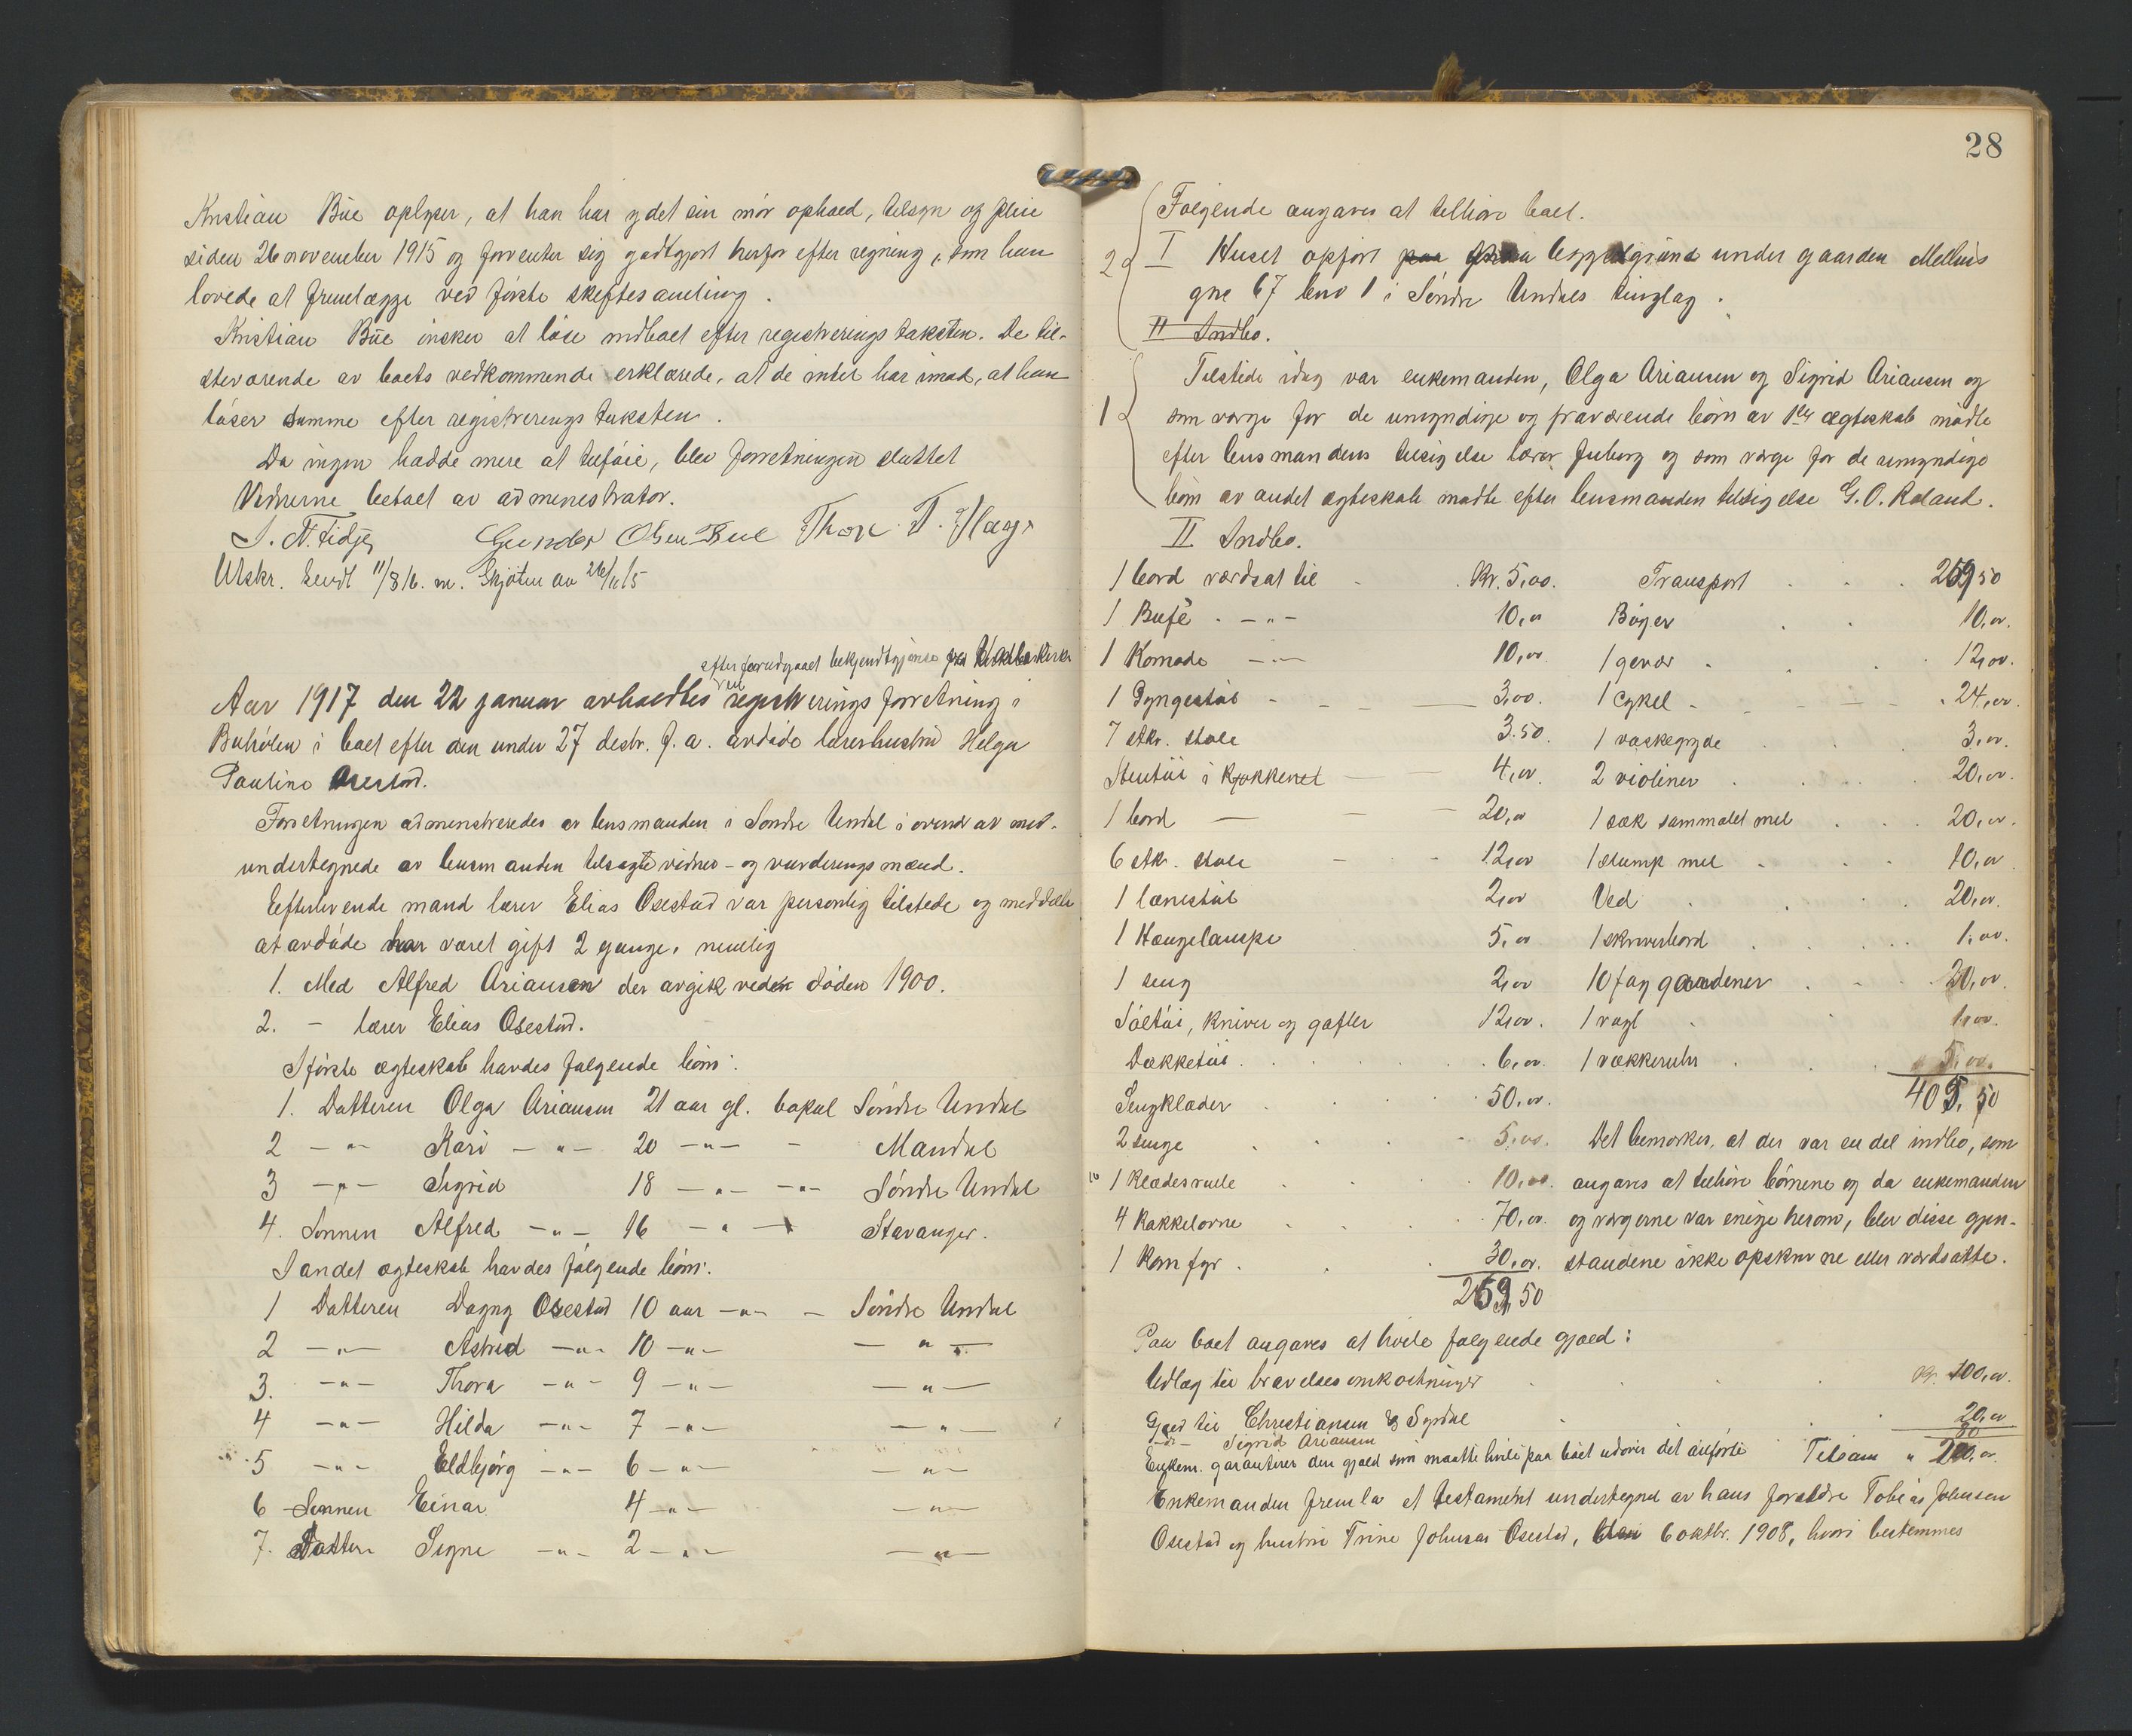 Kristian Bue oplyser, at han har ydet sin mor ophold, tilsyn og pleie
siden 26 november 1915 og forventer sig godtgjort herfor efter regning, som han
lovede at fremlægge ved første skiftesamling.
Kristian Bue ønsker at løse indboet efter registreringstaksten. De til-
steværende av boets vedkommende erklærede, at de intet har imod, at han
løser samme efter registreringstaksten.
Da ingen hadde mere at tilføie, blev forretningen sluttet
Vidnerne betalt av administrator.
Gunder Olsen Bue Thor T.
Utskr. sendt 11/8 16. m. Skjøten av 26/11 15
efter forudgaaet bekjendtgjørelse
Aar 1917 den 22 januar avholdtes registreringsforretning i
Buhølen i boet efter den under 27 decbr. f. a. avdøde lærerhustru Helga
Pauline Osestad.
Forretningen administreredes av lensmanden i Søndre Undal i overvær av med-
undertegnede av lensmanden tilsagte vidner- og vurderingsmænd.
Efterlevende mand lærer Elias Osestad var personlig tilstede og meddelte
at avdøde har været gift 2 gange, nemlig
1. Med Alfred Ariansen der avgik veden døden 1900.
2. - lærer Elias Osestad.
I første ægteskab havdes følgende børn:
1. Datteren Olga Ariansen 21 aar gl. bopæl Søndre Undal
2 -"- Kari -"- 20 -"- - Mandal
3 -"- Sigrid 18 -"- -"- Søndre Undal
4. Sønnen Alfred -"- 16 -"- Stavanger.
I andet ægteskab havdes følgende børn:
1 Datteren Dagny Osestad 10 aar -"- - Søndre Undal
2 -"- Astrid -"- 10 -"- -"-
3. -"- Thora -"- 9 -"- -"-
4 -"- Hilda -"- 7 -"- -"-
5 -"- Eldbjørg -"- 6 -"- -"-
6 Sønnen Einar 4 -"- -"-
7. Datter Signe -"- 2 -"- -"-
28
Følgende angaves at tilhøre boet.
2 I Huset opført paa bygselgrund under gaarden Mellus
gne 67 bno 1 i Søndre Undals tinglag.
II Indbo.
Tilstede idag var enkemanden, Olga Ariansen og Sigrid Ariansen og
1 som værge for de umyndige og fraværende børn av 1ste ægteskab mødte
efter lensmandens tilsigelse lærer Juberg og som værge for de umyndige
børn av andet ægteskab mødte efter lensmanden tilsigelse G. O. Røland.
II Indbo.
1 bord værdsat til Kr. 5,00.
1 Bufè - -"- 10,00
1 Komode -"- 10,00.
1 Gyngestol - 3,00.
7 stkr. stole 3.50.
Stentøi i kjøkkenet 4,00.
1 bord 20,00
6 stkr. stole 12,00
1 lænestol 2,00
1 Hængelampe 5,00
1 seng 2,00
Søltøi, kniver og gafler 12,00.
Dækketøi 6,00.
Sengklæder 50,00.
2 senge 5,00.
1 klædesrulle 10,00.
4 kakkelovne 70,00.
1 komfyr 30,00.
259,50
Transport 259,50
Bøger 10,00.
1 gevær 12,00.
1 cykel 24,00.
1 vaskegryde 3,00.
2 violiner 20,00.
1 sæk sammalet mel 20,00.
1 slump mel 10,00
Ved 20,00.
1 skriverbord 1,00.
10 fag gardener 20,00.
1 vægt 1,00.
1 vækkeruhr 5,00.
405,50
Det bemerkes, at der var en del indbo, som
angaves at tilhøre børnene og da enkemanden
og værgerne var enige herom, blev disse gjen-
standene ikke opskrevne eller værdsatte.
Paa boet angaves at hvile følgende gjæld:
Utlæg til bravelsesomkostninger Kr. 100,00.
Gjæld til Christiansen & Syrdal 20,00
-"- Sigrid Ariansen 80
Enkem. garanterer den gjæld som maatte hvile paa boet udover det anførte Tilsam " 200,00.
Enkemanden fremla et testament undertegnet av hans forældre Tobias Johnsen
Osestad og hustru Trine Johnsen Osestad, 6 oktbr. 1908, hvori bestemmes